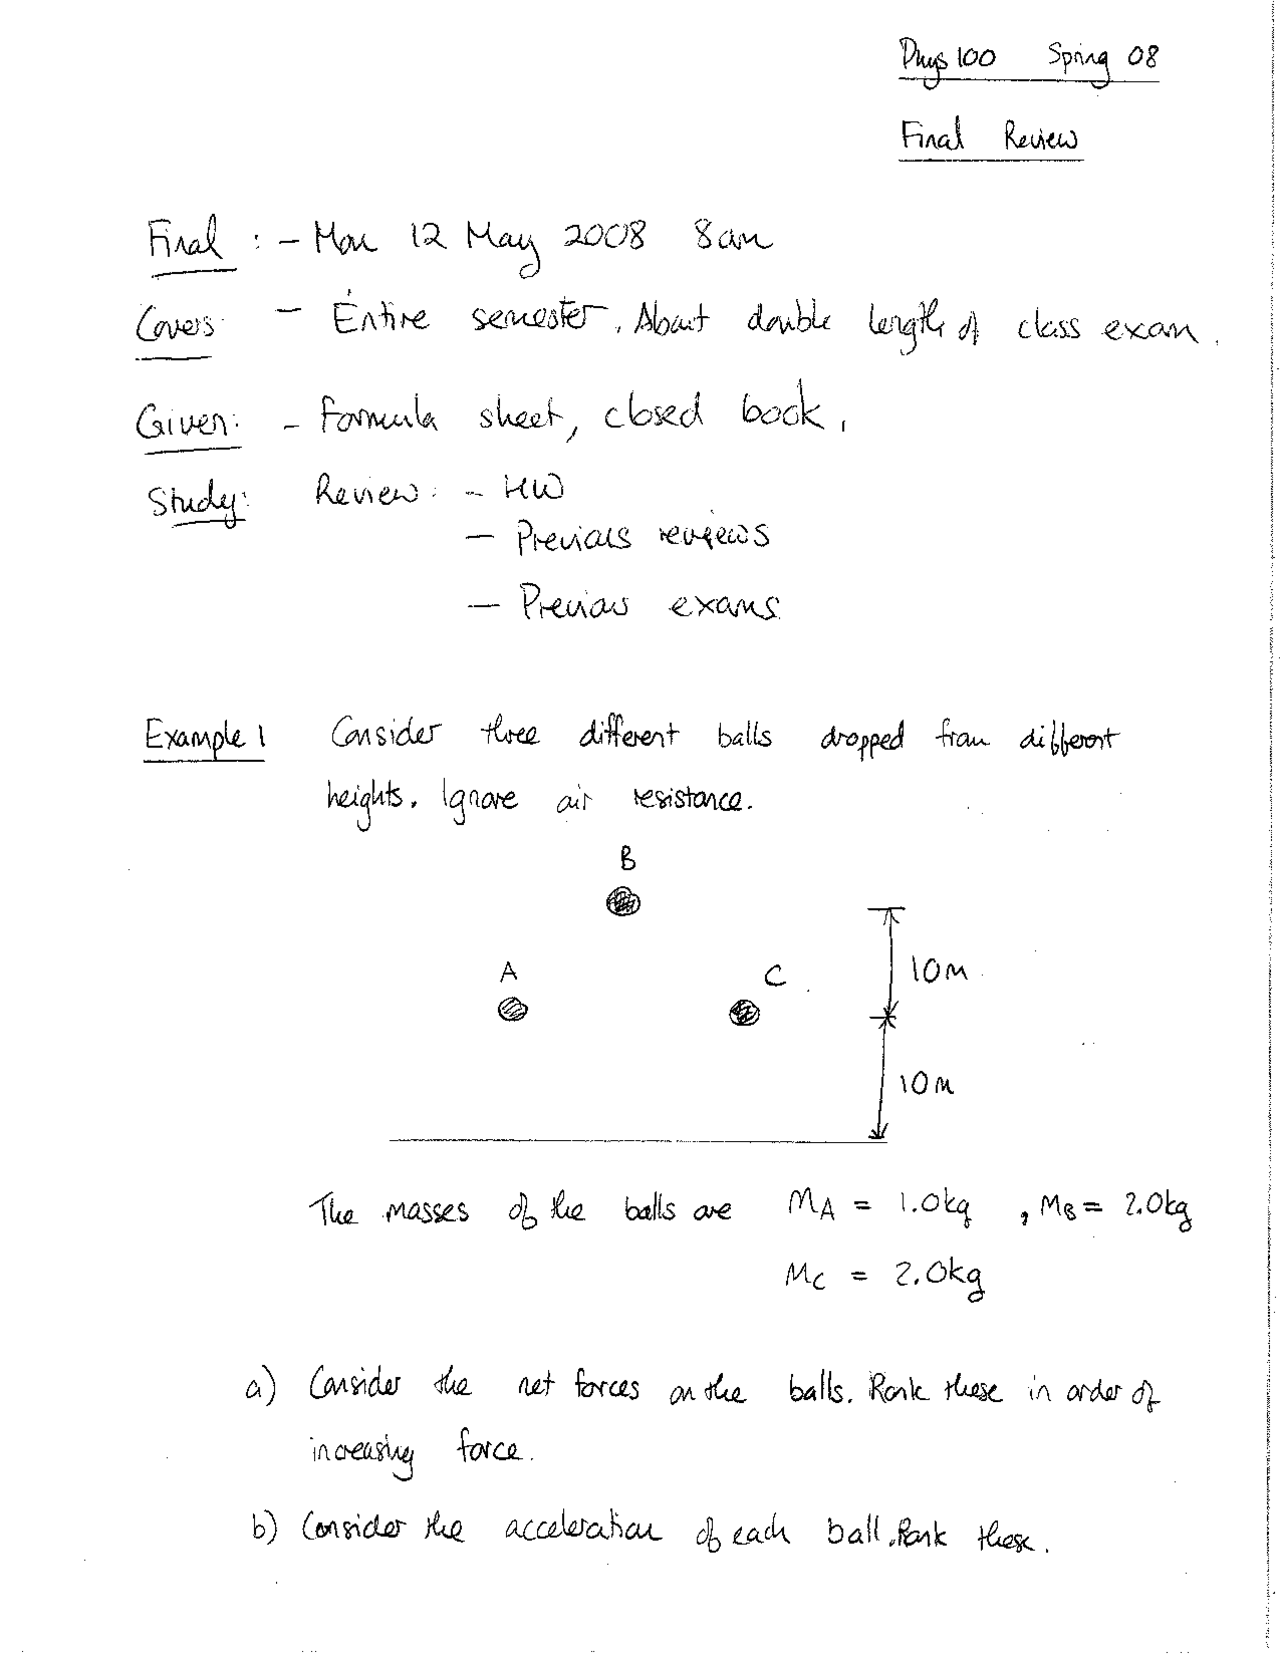 Phys 100 Spring 08
Final Review
Final : - Mon 12 May 2008 8am
Covers - Entire semester. About double length of class exam.
Given: - Formula sheet, closed book.
Study: Review: - HW
- Previous reviews
- Previous exams
Example 1 Consider three different balls dropped from different
heights. Ignore air resistance.
B
A C 10m
10m
The masses of the balls are MA = 1.0kg , MB = 2.0kg
MC = 2.0kg
a) Consider the net forces on the balls. Rank these in order of
increasing force.
b) Consider the acceleration of each ball. Rank these.